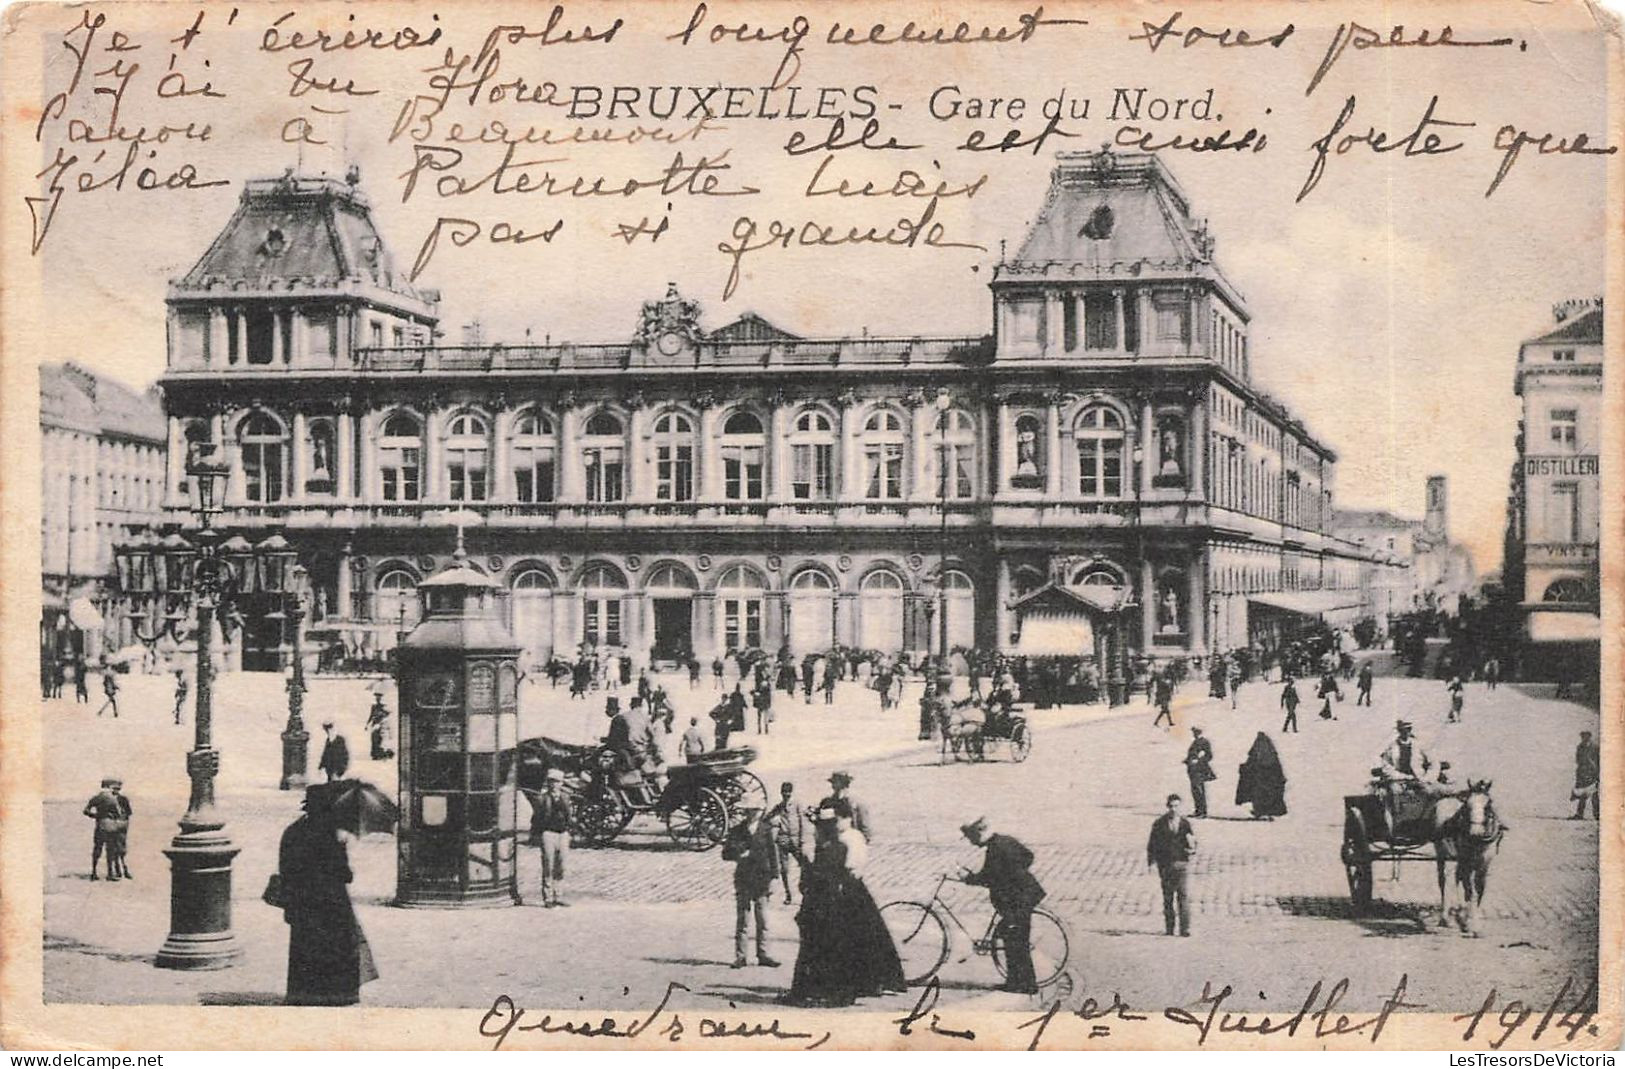 Je t'écrirai plus longuement sous peu.
J'ai vu Flora
BRUXELLES - Gare du Nord.
à Beaumont, elle est aussi forte que
Zélia Paternotte mais
pas si grande.
DISTILLERI
VINS &
le 1er Juillet 1914.
LesTresorsDeVictoria